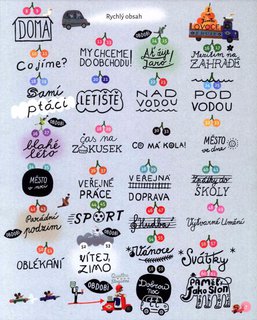 Rychlý obsah
DOMA
Co jíme?
MY CHCEME
DO OBCHODU!
Ať žije
jaro!
Mezitím na
ZAHRADĚ
ptáci
LETIŠTĚ
NAD
VODOU
POD
VODOU
OBDOBÍ
blahé
léto
čas na
ZÁKUSEK
CO MÁ KOLA!
MĚSTO
ve dne
MĚSTO
v noci
VEŘEJNÉ
PRÁCE
VEŘEJNÁ
DOPRAVA
Zpátky do
ŠKOLY
OBDOBÍ
Parádní
podzim
SPORT
Hudba
Výtvarné Umění
OBLÉKÁNÍ
VÍTEJ,
ZIMO
Vánoce
Svátky
OBDOBÍ
Dobrou
noc
PAMĚŤ
jako Slon